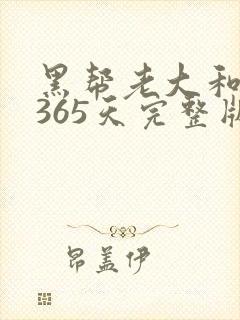 黑帮老大和
365天完整版
昂盖伊